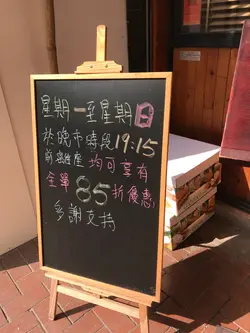 星期一至星期日
於晚市時段19:15
前惠進座均可享有
全單85折優惠
多謝支持